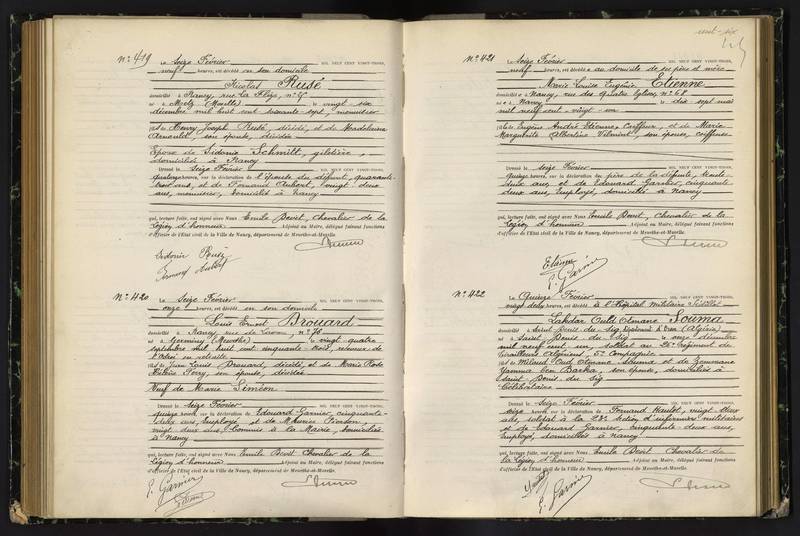 N° 419 Le Seize Février MIL NEUF CENT VINGT-TROIS,
neuf heures, est décédé en son domicile
Nicolas Rusé
domicilié à Nancy, rue La Flize, n°
né à Metz (Moselle) le vingt six
décembre mil huit cent soixante-sept, menuisier
fils de Henry Joseph Rusé, décédé, et de Magdeleine
Arnould, son épouse, décédée
Epoux de Sidonie Schmitt, giletière,
domiciliée à Nancy
Dressé le Seize Février MIL NEUF CENT VINGT-TROIS,
quatorze heures, sur la déclaration de l'épouse du défunt, quarante
trois ans, et de Fernand Aubert, vingt deux
ans, menuisier, domicilié à Nancy
qui, lecture faite, ont signé avec Nous Emile Bevit, Chevalier de la
Légion d'honneur Adjoint au Maire, délégué faisant fonctions
d'officier de l'Etat civil de la Ville de Nancy, département de Meurthe-et-Moselle.
Sidonie Rusé
Fernand Aubert
N° 420 Le Seize Février MIL NEUF CENT VINGT-TROIS,
onze heures, est décédé en son domicile
Louis Ernest Brouard
domicilié à Nancy, rue de n° 78
né à Germiny (Meurthe) le vingt-quatre
septembre mil huit cent cinquante trois, receveur de
l'Octroi en retraite
fils de Jean Louis Brouard, décédé, et de Marie Rose
Perry, son épouse, décédée
Veuf de Marie Siméon
Dressé le Seize Février MIL NEUF CENT VINGT-TROIS,
quinze heures, sur la déclaration de Edouard Garnier, cinquante
deux ans, Employé, et de Maurice
vingt deux ans, Commis à la Mairie, domiciliés
à Nancy
qui, lecture faite, ont signé avec Nous Emile Bevit Chevalier de la
Légion d'honneur Adjoint au Maire, délégué faisant fonctions
d'officier de l'Etat civil de la Ville de Nancy, département de Meurthe-et-Moselle.
E. Garnier
cent-six
N° 421 Le Seize Février MIL NEUF CENT VINGT-TROIS,
neuf heures, est décédée au domicile de ses père et mère
Marie Louise Eugénie Etienne
domiciliée à Nancy, rue des Quatre Eglises, n°
née à Nancy le dix sept mai
mil neuf cent vingt un
fille de Eugène André Etienne, Coiffeur, et de Marie
Marguerite Albertine son épouse, coiffeuse
Dressé le seize Février MIL NEUF CENT VINGT-TROIS,
quinze heures, sur la déclaration du père de la défunte, trente
deux ans, et de Edouard Garnier, cinquante
deux ans, Employé, domiciliés à Nancy
qui, lecture faite, ont signé avec Nous Emile Bevit, Chevalier de la
Légion d'honneur Adjoint au Maire, délégué faisant fonctions
d'officier de l'Etat civil de la Ville de Nancy, département de Meurthe-et-Moselle.
Etienne
E. Garnier
N° 422 Le Quinze Février MIL NEUF CENT VINGT-TROIS,
vingt deux heures, est décédé à l'Hôpital militaire Sédillot
Lakdar Ould Otmane Souma
domicilié à Saint Denis du Sig, département d'Oran (Algérie)
né à Saint Denis du Sig le onze décembre
mil neuf cent un, soldat au Régiment de
Tirailleurs Algériens, 5e Compagnie
fils de Miloud Ould Otmane Souma et de
Yamna ben Barka, son épouse, domiciliés à
Saint Denis du Sig
Célibataire
Dressé le Seize Février MIL NEUF CENT VINGT-TROIS,
seize heures, sur la déclaration de Fernand vingt deux
ans, soldat à la Section d'infirmiers militaires
et de Edouard Garnier, cinquante deux ans,
Employé, domiciliés à Nancy
qui, lecture faite, ont signé avec Nous Emile Bevit Chevalier de
la Légion d'honneur Adjoint au Maire, délégué faisant fonctions
d'officier de l'Etat civil de la Ville de Nancy, département de Meurthe-et-Moselle.
E. Garnier